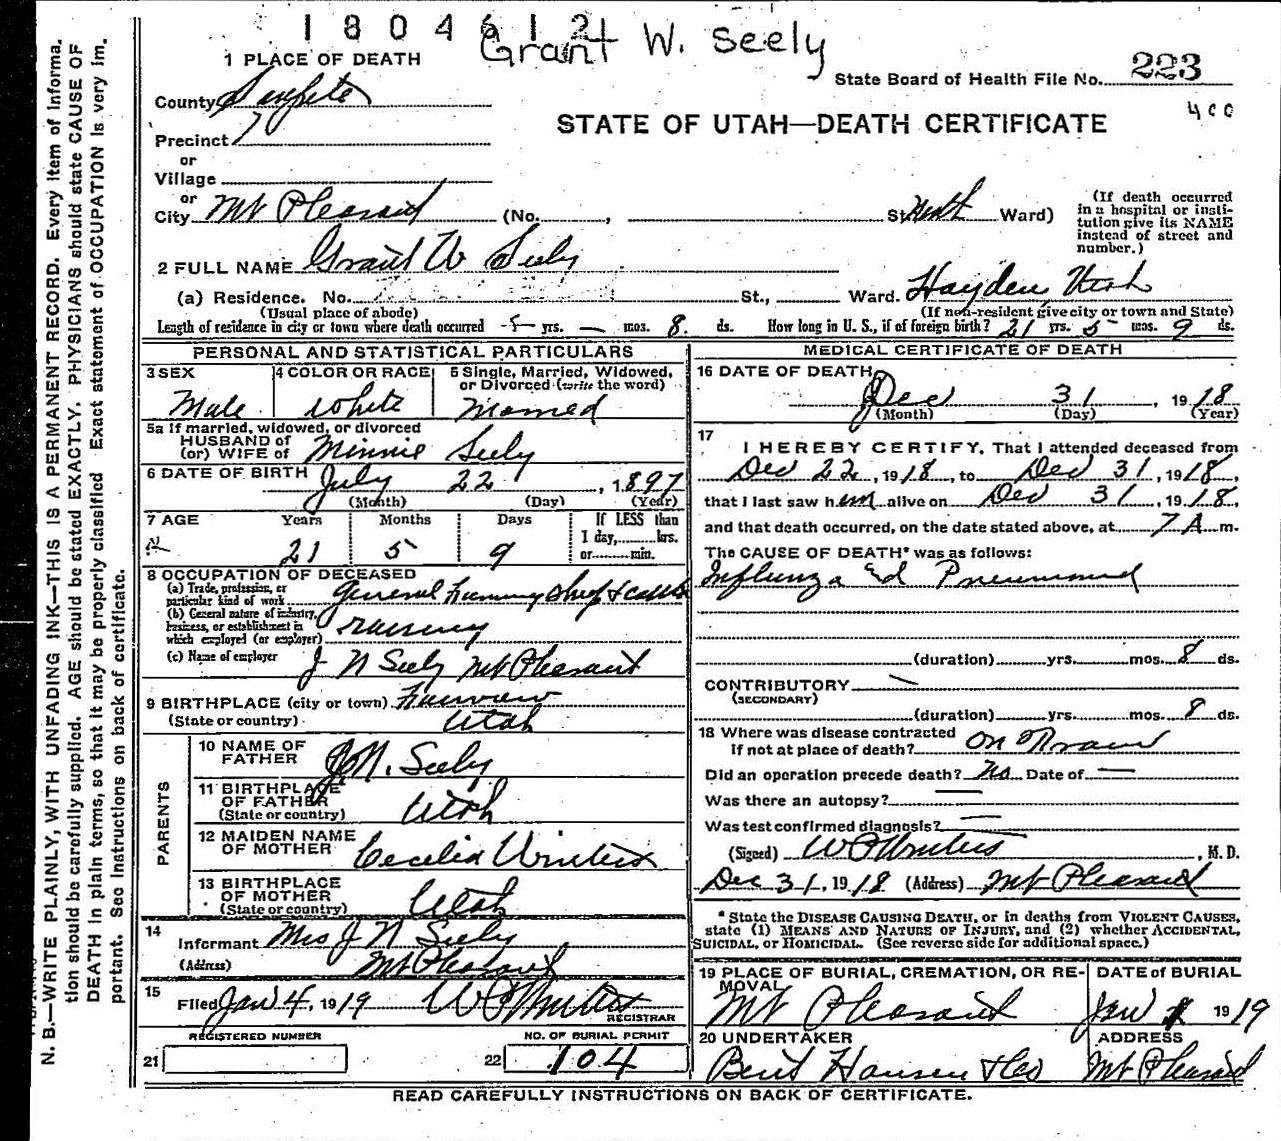 1804612
Grant W. Seely
1 PLACE OF DEATH
State Board of Health File No. 223
400
County Sanpete
STATE OF UTAH—DEATH CERTIFICATE
Precinct 7
or
Village
or
City Mt Pleasant (No. , St. North Ward)
(If death occurred in a hospital or insti-
tution give its NAME instead of street and number.)
2 FULL NAME Grant W Seely
(a) Residence. No. St., Ward. Hayden Utah
(Usual place of abode) (If non-resident give city or town and State)
Length of residence in city or town where death occurred yrs. — mos. 8 ds. How long in U. S., if of foreign birth? 21 yrs. 5 mos. 9 ds.
PERSONAL AND STATISTICAL PARTICULARS
3 SEX 4 COLOR OR RACE 5 Single, Married, Widowed, or Divorced (write the word)
Male White Married
5a If married, widowed, or divorced
HUSBAND of
(or) WIFE of Minnie Seely
6 DATE OF BIRTH July 22, 1897
(Month) (Day) (Year)
7 AGE Years Months Days If LESS than
1 day,......hrs.
or......min.
21 5 9
8 OCCUPATION OF DECEASED
(a) Trade, profession, or
particular kind of work General
(b) General nature of industry,
business, or establishment in
which employed (or employer)
(c) Name of employer J N Seely Mt Pleasant
9 BIRTHPLACE (city or town) Fairview
(State or country) Utah
PARENTS
10 NAME OF FATHER J. N. Seely
11 BIRTHPLACE OF FATHER
(State or country) Utah
12 MAIDEN NAME OF MOTHER Cecelia Winters
13 BIRTHPLACE OF MOTHER
(State or country) Utah
14
Informant Mrs J N Seely
(Address) Mt Pleasant
15
Filed Jan 4, 1919 W P Winters
REGISTRAR
REGISTERED NUMBER NO. OF BURIAL PERMIT
21 22 104
MEDICAL CERTIFICATE OF DEATH
16 DATE OF DEATH
Dec 31, 1918
(Month) (Day) (Year)
17
I HEREBY CERTIFY, That I attended deceased from
Dec 22, 1918, to Dec 31, 1918,
that I last saw him alive on Dec 31, 1918,
and that death occurred, on the date stated above, at 7 A m.
The CAUSE OF DEATH* was as follows:
Influnza Pneumonia
(duration) yrs. mos. 8 ds.
CONTRIBUTORY
(SECONDARY)
(duration) yrs. mos. 8 ds.
18 Where was disease contracted
if not at place of death? on
Did an operation precede death? No Date of —
Was there an autopsy? —
Was test confirmed diagnosis? —
(Signed) W P Winters, M. D.
Dec 31, 1918 (Address) Mt Pleasant
* State the DISEASE CAUSING DEATH, or in deaths from VIOLENT CAUSES,
state (1) MEANS AND NATURE OF INJURY, and (2) whether ACCIDENTAL,
SUICIDAL, or HOMICIDAL. (See reverse side for additional space.)
19 PLACE OF BURIAL, CREMATION, OR RE-
MOVAL DATE of BURIAL
Mt Pleasant Jan 1 1919
20 UNDERTAKER ADDRESS
Bent Hansen & Co Mt Pleasant
READ CAREFULLY INSTRUCTIONS ON BACK OF CERTIFICATE.
N. B.—WRITE PLAINLY, WITH UNFADING INK—THIS IS A PERMANENT RECORD. Every item of informa-
tion should be carefully supplied. AGE should be stated EXACTLY. PHYSICIANS should state CAUSE OF
DEATH in plain terms, so that it may be properly classified Exact statement of OCCUPATION is very im-
portant. See instructions on back of certificate.